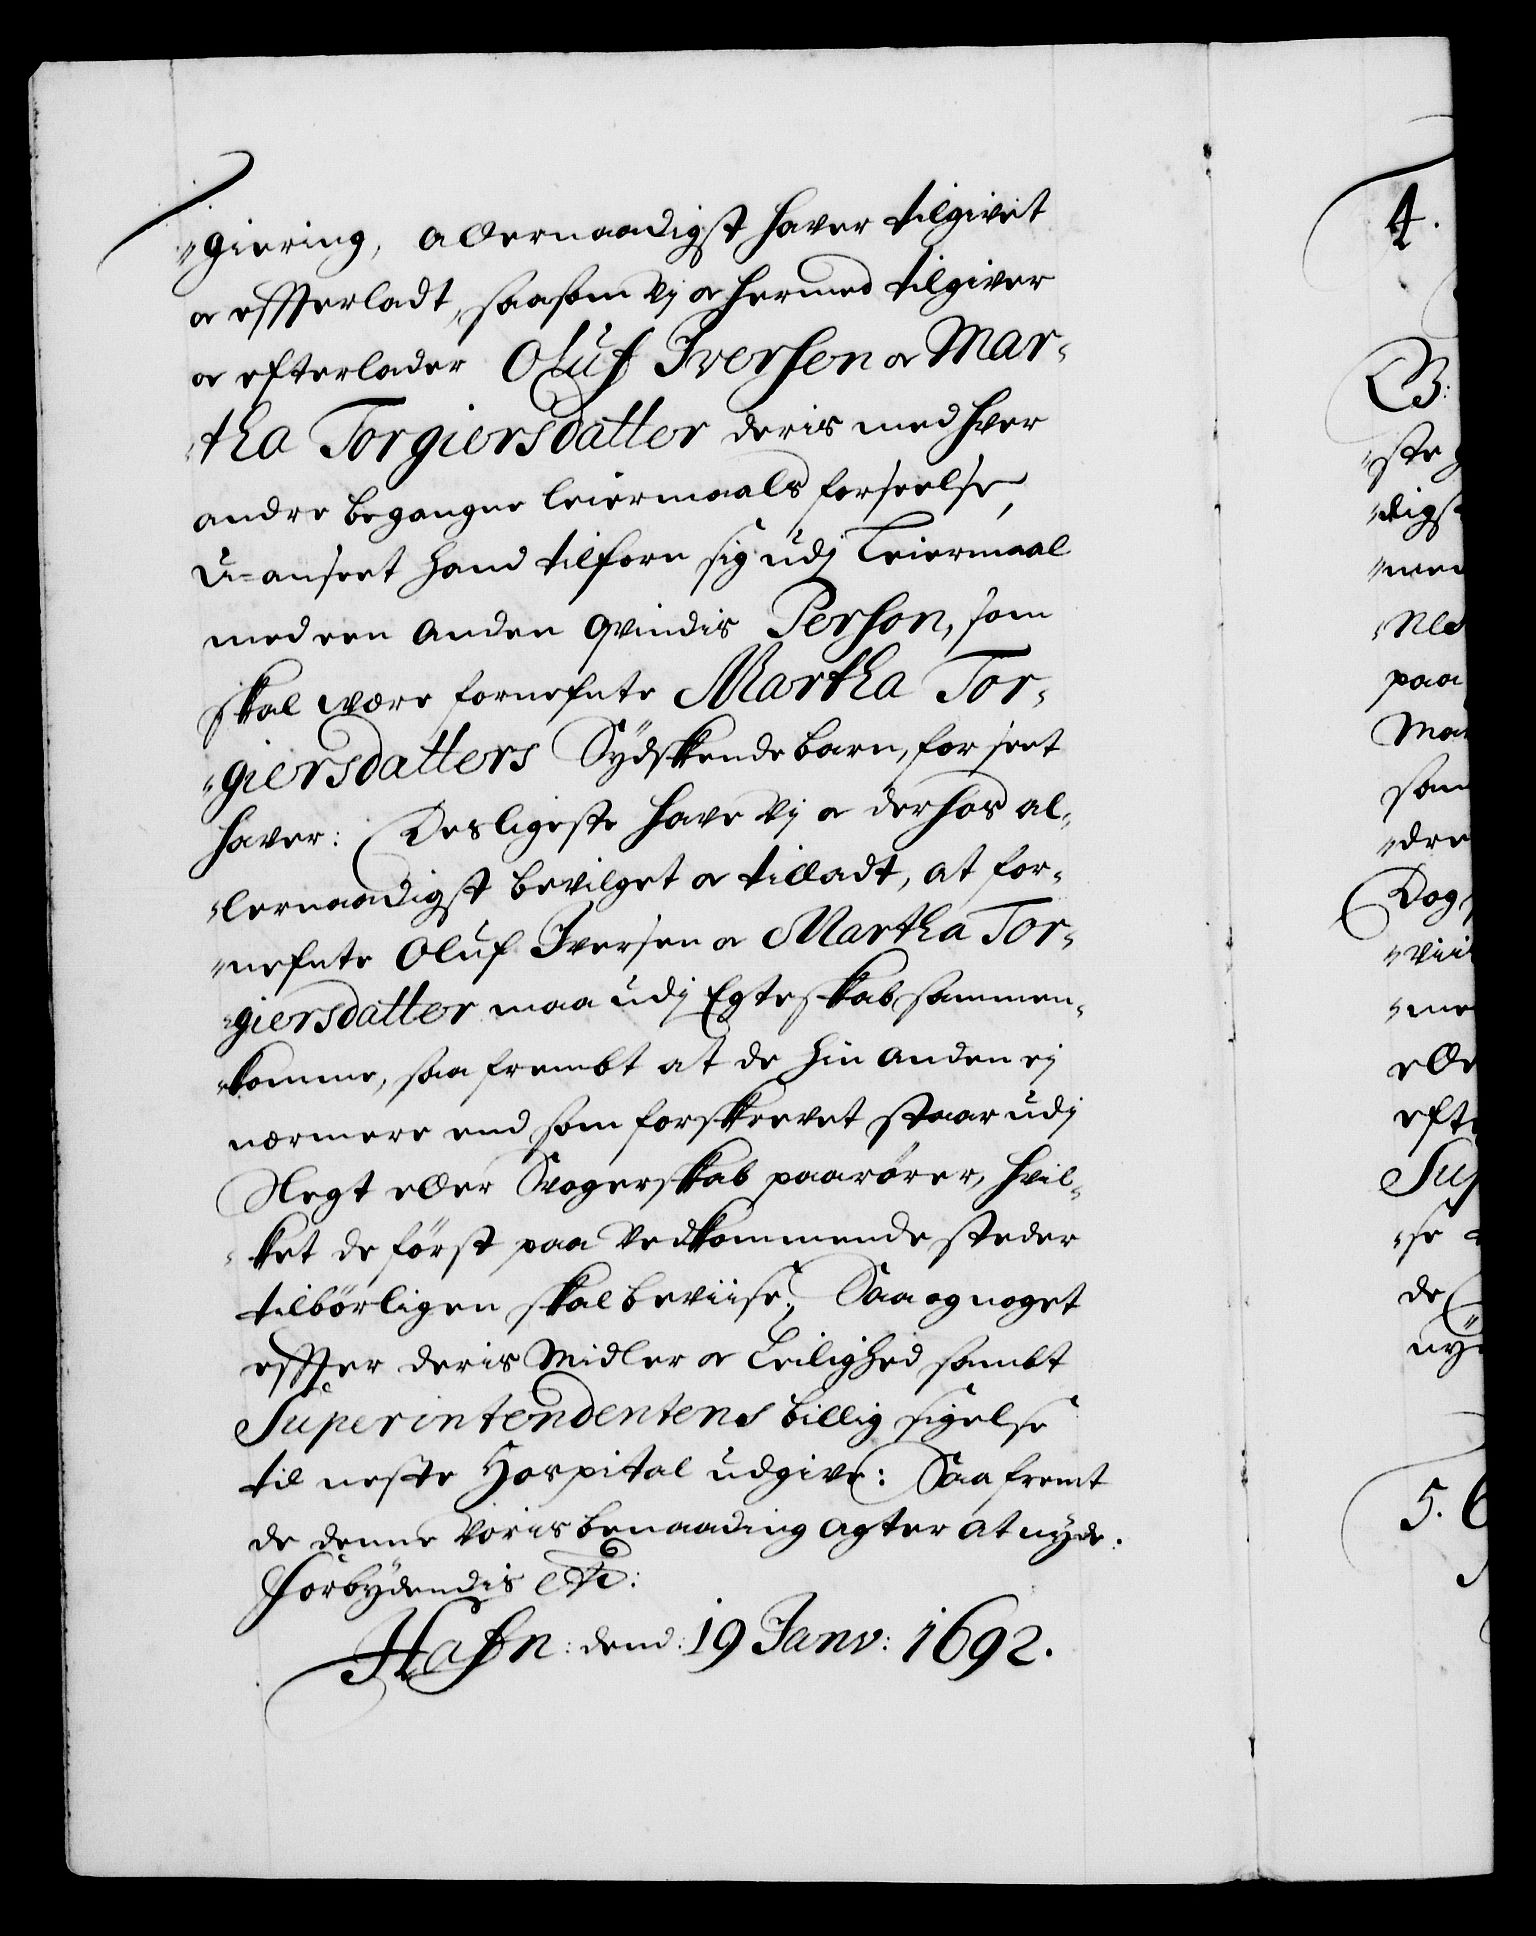 "giering, allernaadigst hafver tilgivet
oc effterladt, saasom Vj oc hermed tilgiver
oc efterlader Oluf Iversen oc Mar-
"tha Torgiersdatter deris med hver
andre begangne leiermaals forseelse,
U-anseet hand tilforn sig udj Leiermaal
med een anden qvindis Person, som
skal være fornefnte Martha Tor-
"giersdatters Sÿdskendebarn, forseet
hafver: Desligeste hafve Vj oc derhos al-
"lernaadigst bevilget oc tilladt, at for-
"nefnte Oluf Iversen oc Martha Tor-
"giersdatter maa udj Egteskab sammen-
"komme, saafrembt at de hin anden ej
nærmere end som forskrevet staar udj
Slegt eller Svogerskab paarörer, hvil-
"ket de först paa Vedkommende steder
tilbörligen skal beviise; Saa og noget
effter deris Midler oc Leilighed sambt
Superintendentens billig sigelse
til neste Hospital udgive: Saafremt
de denne Voris benaading agter at nyde.
Forbÿdendis etc:
Hafn: dend: 19 Janv: 1692.
4.
B:
"ste
"digst
"med
"Ned
paa
Mar
som
"dre
Dog
"vii
"me
elle
efte
Sup
"se
de
nÿ
5.